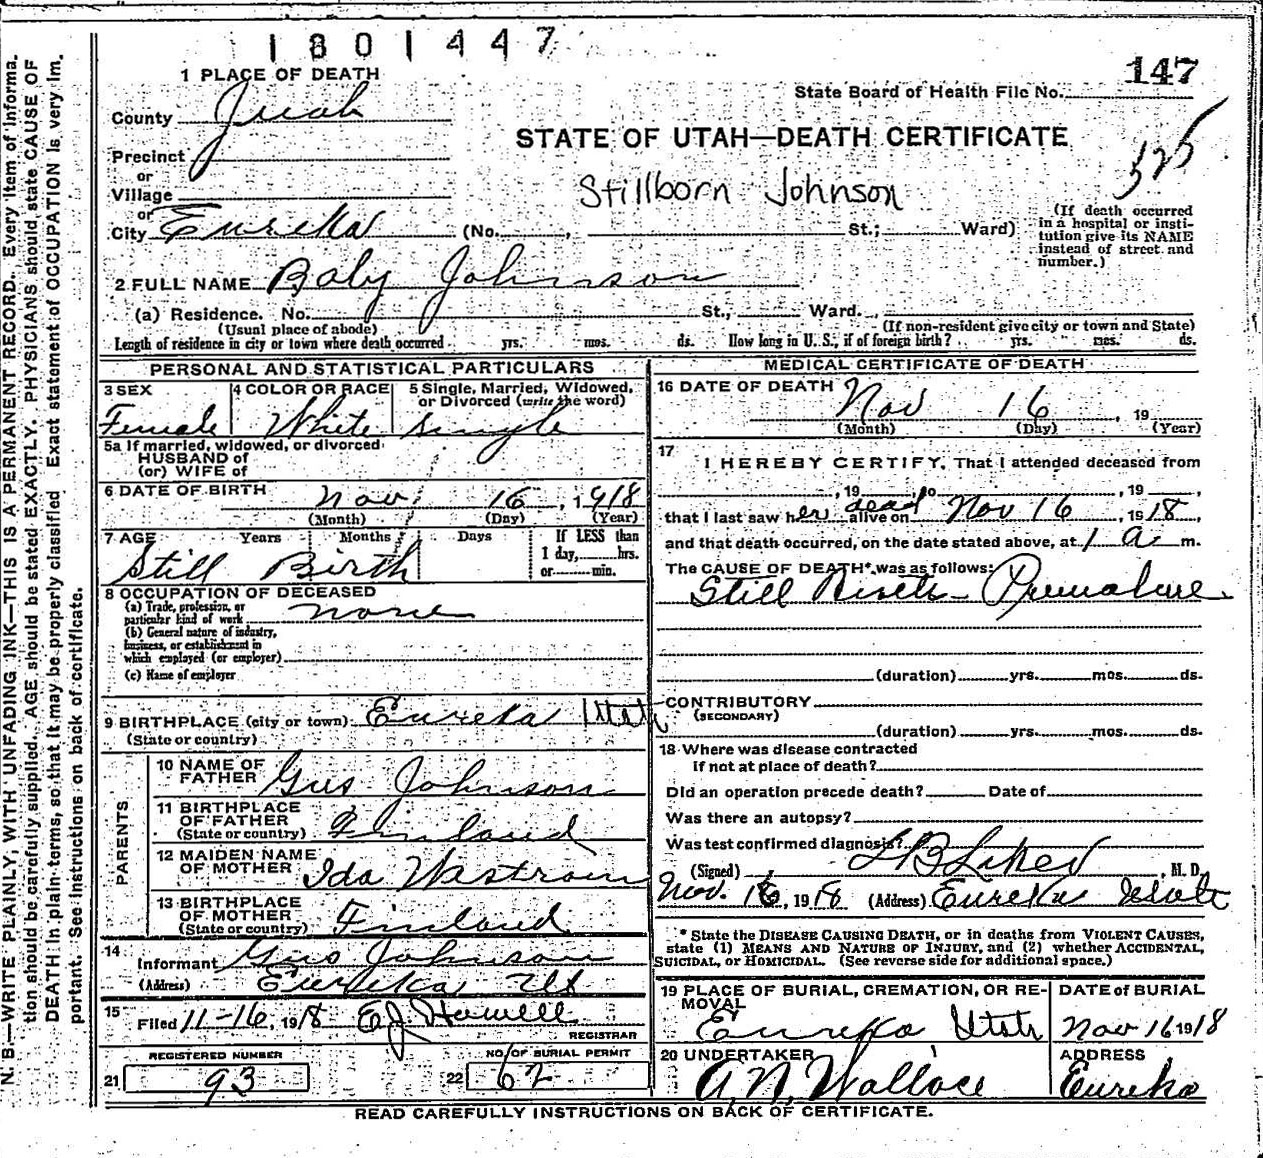 1801447
147
1 PLACE OF DEATH
State Board of Health File No.
County Juab
STATE OF UTAH—DEATH CERTIFICATE
325
Precinct
or
Village
Stillborn Johnson
or
City Eureka (No. , St.; Ward)
(If death occurred
in a hospital or insti-
tution give its NAME
instead of street and
number.)
2 FULL NAME Baby Johnson
(a) Residence. No. St., Ward.
(Usual place of abode) (If non-resident give city or town and State)
Length of residence in city or town where death occurred yrs. mos. ds. How long in U. S., if of foreign birth? yrs. mos. ds.
PERSONAL AND STATISTICAL PARTICULARS
3 SEX 4 COLOR OR RACE 5 Single, Married, Widowed,
or Divorced (write the word)
Female White Single
5a If married, widowed, or divorced
HUSBAND of
(or) WIFE of
6 DATE OF BIRTH Nov 16, 1918
(Month) (Day) (Year)
7 AGE Years Months Days If LESS than
1 day, hrs.
or min.
Still Birth
8 OCCUPATION OF DECEASED
(a) Trade, profession, or
particular kind of work none
(b) General nature of industry,
business, or establishment in
which employed (or employer)
(c) Name of employer
9 BIRTHPLACE (city or town) Eureka Utah
(State or country)
PARENTS
10 NAME OF
FATHER Gus Johnson
11 BIRTHPLACE
OF FATHER
(State or country) Finland
12 MAIDEN NAME
OF MOTHER Ida Wastrom
13 BIRTHPLACE
OF MOTHER
(State or country) Finland
14
Informant Gus Johnson
(Address) Eureka Ut
15
Filed 11-16, 1918 EJ Howell
REGISTRAR
REGISTERED NUMBER NO. OF BURIAL PERMIT
21 93 22 62
MEDICAL CERTIFICATE OF DEATH
16 DATE OF DEATH Nov 16, 19
(Month) (Day) (Year)
17
I HEREBY CERTIFY, That I attended deceased from
, 19 , to , 19 ,
that I last saw her dead alive on Nov 16, 1918,
and that death occurred, on the date stated above, at 1 a m.
The CAUSE OF DEATH* was as follows:
Still Birth - Premature
(duration) yrs. mos. ds.
CONTRIBUTORY
(SECONDARY)
(duration) yrs. mos. ds.
18 Where was disease contracted
if not at place of death?
Did an operation precede death? Date of
Was there an autopsy?
Was test confirmed diagnosis?
(Signed) , M. D.
Nov. 16, 1918 (Address) Eureka Utah
* State the DISEASE CAUSING DEATH, or in deaths from VIOLENT CAUSES,
state (1) MEANS AND NATURE OF INJURY, and (2) whether ACCIDENTAL,
SUICIDAL, or HOMICIDAL. (See reverse side for additional space.)
19 PLACE OF BURIAL, CREMATION, OR RE-
MOVAL
DATE of BURIAL
Eureka Utah Nov 16 1918
20 UNDERTAKER ADDRESS
A. N. Wallace Eureka
READ CAREFULLY INSTRUCTIONS ON BACK OF CERTIFICATE.
N. B.—WRITE PLAINLY, WITH UNFADING INK—THIS IS A PERMANENT RECORD. Every item of informa-
tion should be carefully supplied. AGE should be stated EXACTLY. PHYSICIANS should state CAUSE OF
DEATH in plain terms, so that it may be properly classified. Exact statement of OCCUPATION is very im-
portant. See instructions on back of certificate.